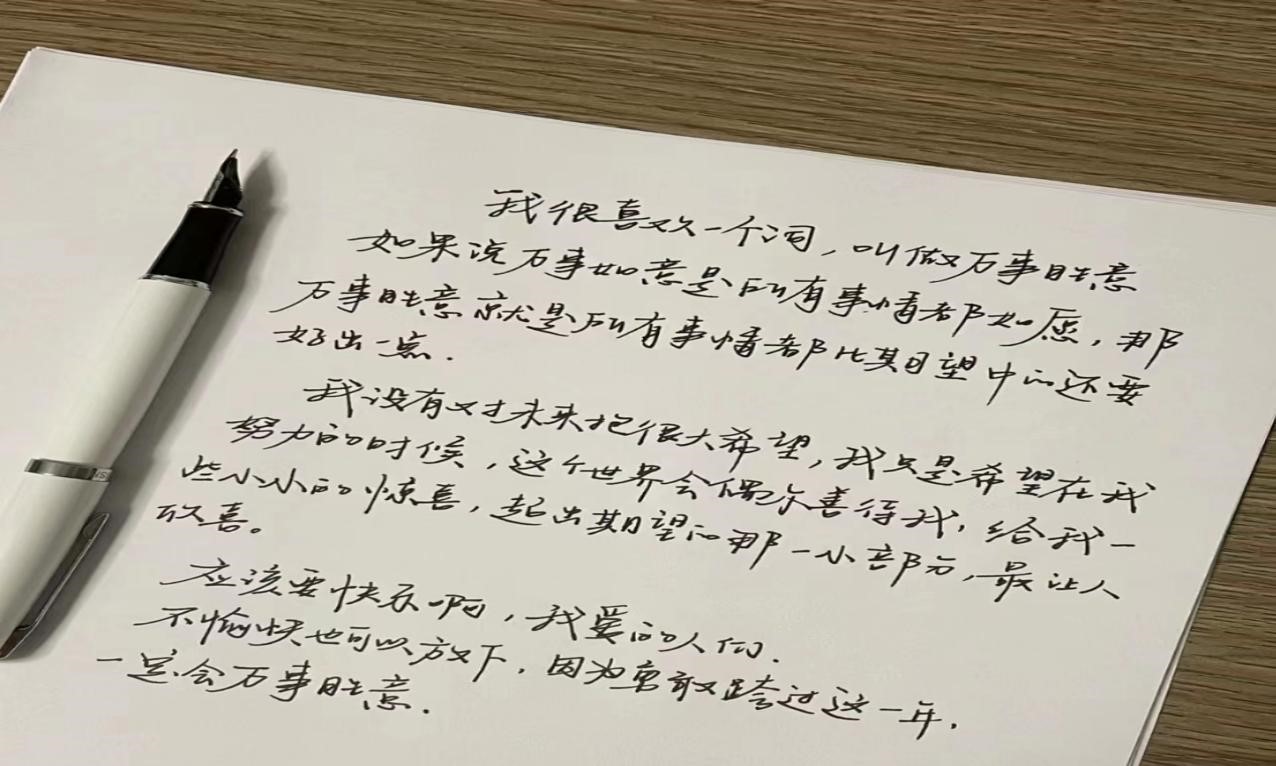 我很喜欢一个词，叫做万事胜意
如果说万事如意是所有事情都如愿，那
万事胜意就是所有事情都比期望中的还要
好出一点.
我没有对未来抱很大希望，我只是希望在我
努力的时候，这个世界会偶尔善待我，给我一
些小小的惊喜，超出期望的那一小部分，最让人
欣喜。
应该要快乐啊，我爱的人们.
不愉快也可以放下，因为勇敢跨过这一年，
一定会万事胜意.